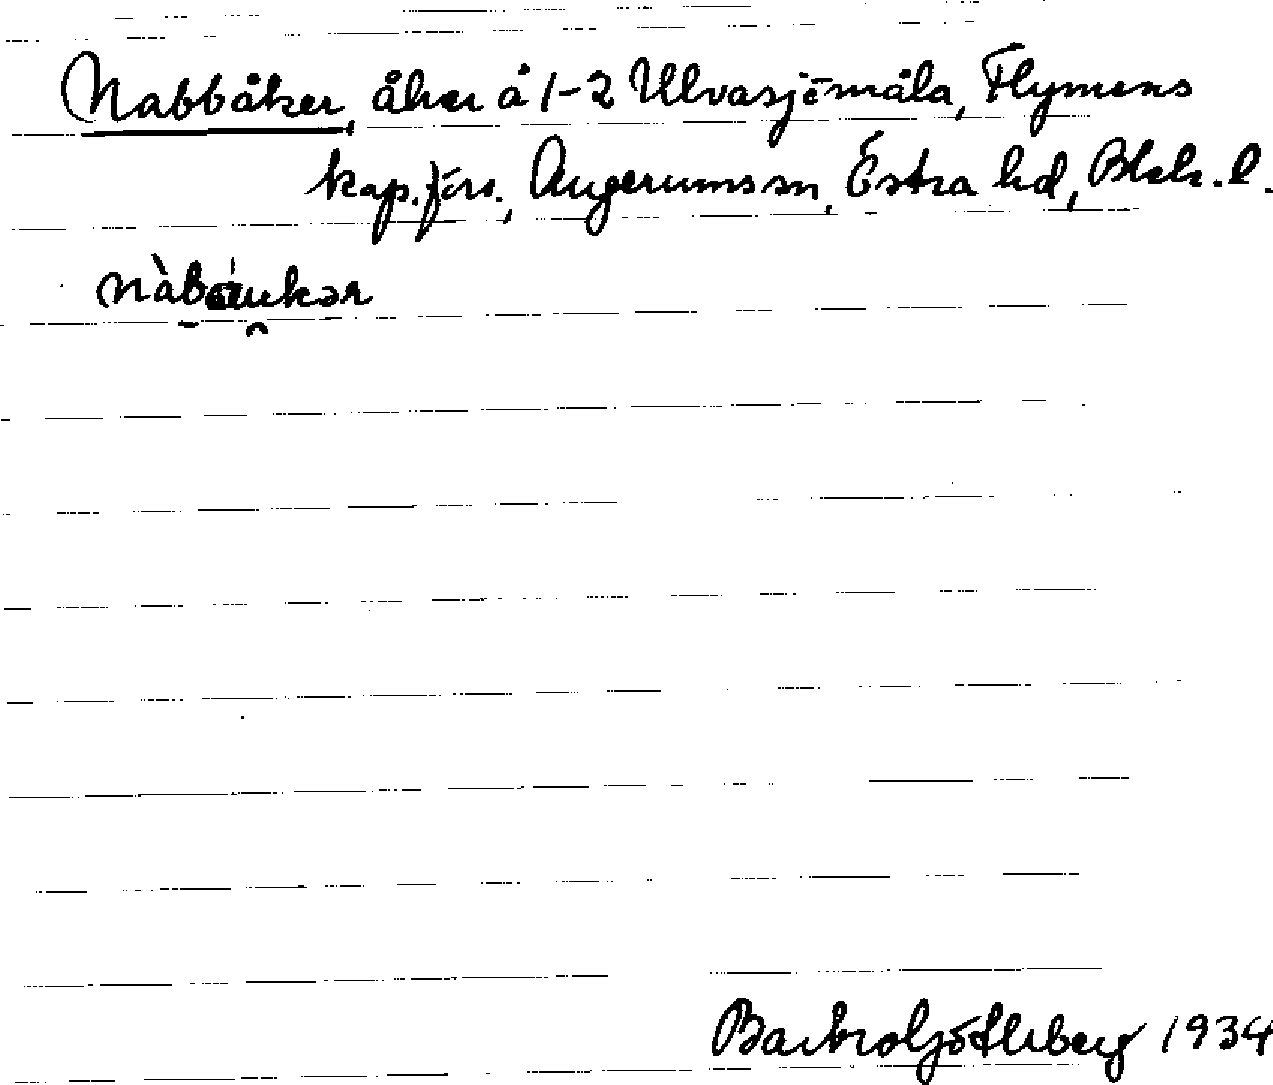 Nabbåker, åker å 1-2 Ulvasjömåla, Flymens
kap.förs., Augerums sn, Östra hd, Blek. l.
Barbro Götlberg 1934